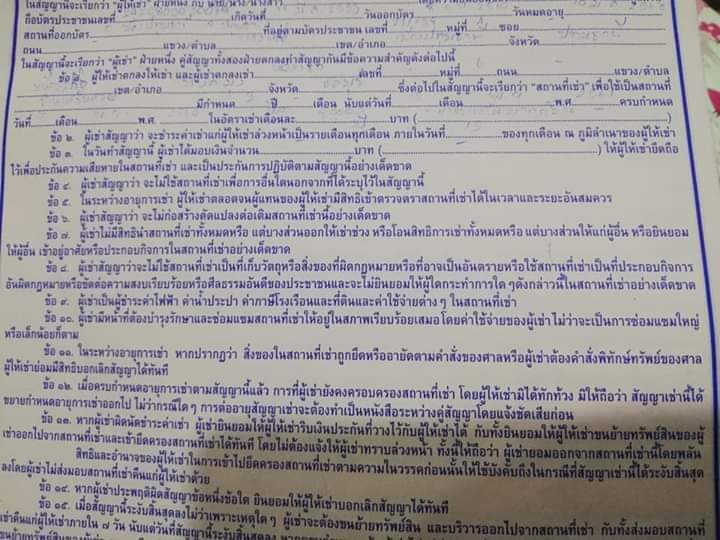 ในสัญญานี้จะเรียกว่า "ผู้ให้เช่า" ฝ่ายหนึ่ง กับ นาย/นาง/นางสาว
ถือบัตรประชาชนเลขที่ เกิดวันที่ วันออกบัตร วันหมดอายุ
สถานที่ออกบัตร ที่อยู่ตามบัตรประชาชน เลขที่ หมู่ที่ ซอย
ถนน แขวง/ตำบล เขต/อำเภอ จังหวัด
ในสัญญานี้จะเรียกว่า "ผู้เช่า" ฝ่ายหนึ่ง คู่สัญญาทั้งสองฝ่ายตกลงทำสัญญากันมีข้อความสำคัญดังต่อไปนี้
ข้อ ๑. ผู้ให้เช่าตกลงให้เช่า และผู้เช่าตกลงเช่า เลขที่ หมู่ที่ ถนน แขวง/ตำบล
เขต/อำเภอ จังหวัด ซึ่งต่อไปในสัญญานี้จะเรียกว่า "สถานที่เช่า" เพื่อใช้เป็นสถานที่
มีกำหนด ปี เดือน นับแต่วันที่ เดือน พ.ศ. ครบกำหนด
วันที่ เดือน พ.ศ. ในอัตราค่าเช่าเดือนละ บาท ( )
ข้อ ๒. ผู้เช่าสัญญาว่า จะชำระค่าเช่าแก่ผู้ให้เช่าล่วงหน้าเป็นรายเดือนทุกเดือน ภายในวันที่ ของทุกเดือน ณ ภูมิลำเนาของผู้ให้เช่า
ข้อ ๓. ในวันทำสัญญานี้ ผู้เช่าได้มอบเงินจำนวน บาท ( ) ให้ผู้ให้เช่ายึดถือ
ไว้เพื่อประกันความเสียหายในสถานที่เช่า และเป็นประกันการปฏิบัติตามสัญญานี้อย่างเด็ดขาด
ข้อ ๔. ผู้เช่าสัญญาว่า จะไม่ใช้สถานที่เช่าเพื่อการอื่นใดนอกจากที่ได้ระบุไว้ในสัญญานี้
ข้อ ๕. ในระหว่างอายุการเช่า ผู้ให้เช่าตลอดจนผู้แทนของผู้ให้เช่ามีสิทธิเข้าตรวจตราสถานที่เช่าได้ในเวลาและระยะอันสมควร
ข้อ ๖. ผู้เช่าสัญญาว่า จะไม่ก่อสร้างดัดแปลงต่อเติมสถานที่เช่านี้อย่างเด็ดขาด
ข้อ ๗. ผู้เช่าไม่มีสิทธินำสถานที่เช่าทั้งหมดหรือ แต่บางส่วนออกให้เช่าช่วง หรือโอนสิทธิการเช่าทั้งหมดหรือ แต่บางส่วนให้แก่ผู้อื่น หรือยินยอม
ให้ผู้อื่น เข้าอยู่อาศัยหรือประกอบกิจการในสถานที่เช่าอย่างเด็ดขาด
ข้อ ๘. ผู้เช่าสัญญาว่าจะไม่ใช้สถานที่เช่าเป็นที่เก็บวัตถุหรือสิ่งของที่ผิดกฎหมายหรือที่อาจเป็นอันตรายหรือใช้สถานที่เช่าเป็นที่ประกอบกิจการ
อันผิดกฎหมายหรือขัดต่อความสงบเรียบร้อยหรือศีลธรรมอันดีของประชาชนและจะไม่ยินยอมให้ผู้ใดกระทำการใด ๆดังกล่าวนี้ในสถานที่เช่าอย่างเด็ดขาด
ข้อ ๙. ผู้เช่าเป็นผู้ชำระค่าไฟฟ้า ค่าน้ำประปา ค่าภาษีโรงเรือนและที่ดินและค่าใช้จ่ายต่างๆ ในสถานที่เช่า
ข้อ ๑๐. ผู้เช่ามีหน้าที่ต้องบำรุงรักษาและซ่อมแซมสถานที่เช่าให้อยู่ในสภาพเรียบร้อยเสมอโดยค่าใช้จ่ายของผู้เช่าไม่ว่าจะเป็นการซ่อมแซมใหญ่
หรือเล็กน้อยก็ตาม
ข้อ ๑๑. ในระหว่างอายุการเช่า หากปรากฏว่า สิ่งของในสถานที่เช่าถูกยึดหรืออายัดตามคำสั่งของศาลหรือผู้เช่าต้องคำสั่งพิทักษ์ทรัพย์ของศาล
ผู้ให้เช่าย่อมมีสิทธิบอกเลิกสัญญาได้ทันที
ข้อ ๑๒. เมื่อครบกำหนดอายุการเช่าตามสัญญานี้แล้ว การที่ผู้เช่ายังคงครอบครองสถานที่เช่า โดยผู้ให้เช่ามิได้ทักท้วง มิให้ถือว่า สัญญาเช่านี้ได้
ขยายกำหนดอายุการเช่าออกไป ไม่ว่ากรณีใด ๆ การต่ออายุสัญญาเช่าจะต้องทำเป็นหนังสือระหว่างคู่สัญญาโดยแจ้งชัดเสียก่อน
ข้อ ๑๓. หากผู้เช่าผิดนัดชำระค่าเช่า ผู้เช่ายินยอมให้ผู้ให้เช่าริบเงินประกันที่วางไว้กับผู้ให้เช่าได้ กับทั้งยินยอมให้ผู้ให้เช่าขนย้ายทรัพย์สินของผู้
เช่าออกไปจากสถานที่เช่าและเข้ายึดครองสถานที่เช่าได้ทันที โดยไม่ต้องแจ้งให้ผู้เช่าทราบล่วงหน้า ทั้งนี้ให้ถือว่า ผู้เช่ายอมออกจากสถานที่เช่านี้โดยพลัน
สิทธิและอำนาจของผู้ให้เช่าในการเข้าไปยึดครองสถานที่เช่าตามความในวรรคก่อนนั้นให้ใช้บังคับถึงในกรณีที่สัญญาเช่านี้ได้ระงับสิ้นสุด
ลงโดยผู้เช่าไม่ส่งมอบสถานที่เช่าคืนแก่ผู้ให้เช่าด้วย
ข้อ ๑๔. หากผู้เช่าประพฤติผิดสัญญาข้อหนึ่งข้อใด ยินยอมให้ผู้ให้เช่าบอกเลิกสัญญาได้ทันที
ข้อ ๑๕. เมื่อสัญญานี้ระงับสิ้นสุดลงไม่ว่าเพราะเหตุใดๆ ผู้เช่าจะต้องขนย้ายทรัพย์สิน และบริวารออกไปจากสถานที่เช่า กับทั้งส่งมอบสถานที่
เช่าคืนแก่ผู้ให้เช่าภายใน ๗ วัน นับแต่วันที่สัญญานี้ระงับสิ้นสุดลง